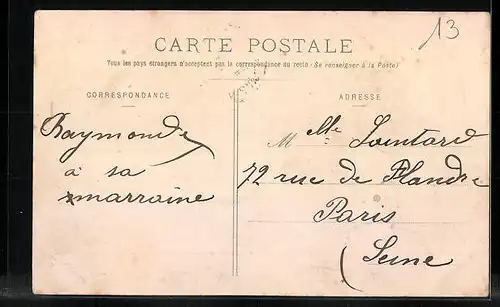 13
CARTE POSTALE
Tous les pays étrangers n'acceptent pas la correspondance au recto (Se renseigner à la Poste)
CORRESPONDANCE
ADRESSE
Raymonde
à sa
marraine
Mlle
72 rue de Flandre
Paris
(Seine